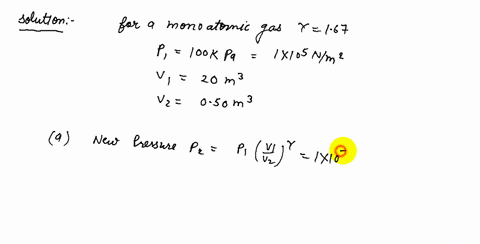 solution:- for a monoatomic gas γ = 1.67
P₁ = 100K Pa = 1X10⁵ N/m²
V₁ = 20 m³
V₂ = 0.50 m³
(a) New Pressure P₂ = P₁ (V₁/V₂)^γ = 1X10